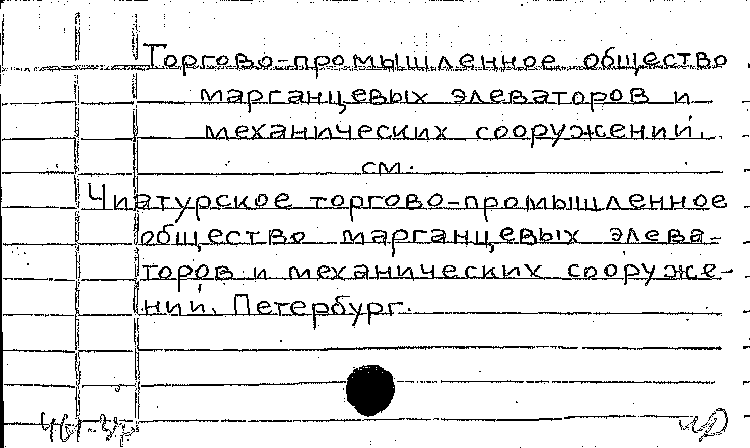 Торгово-промышленное общество
марганцевых элеваторов и
механических сооружений.
см.
Чиатурское торгово-промышленное
общество марганцевых элева-
торов и механических сооруже-
ний. Петербург.